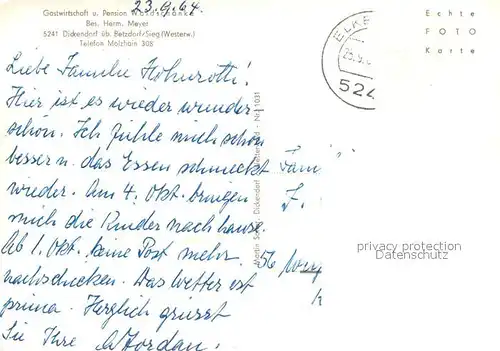 23.9.64.
Gastwirtschaft u. Pension Waldschänke
Bes. Herm. Meyer
5241 Dickendorf üb. Betzdorf-Sieg (Westerw.)
Telefon Molzhain 308
Liebe Familie
Hier ist es wieder wunder
schön. Ich fühle mich schon
besser u. das Essen schmeckt
wieder. Am 4. Okt. bringen
mich die Kinder nach hause.
Ab 1. Okt. keine Post mehr
nachschicken. Das Wetter ist
prima. Herzlich grüsst
Sie Ihre
Dickendorf
Nr. 1031
ELK
524
Fam
56
Echte
FOTO
Karte
privacy protection
Datenschutz